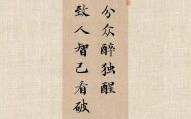 分众醉独醒
致人智己看破